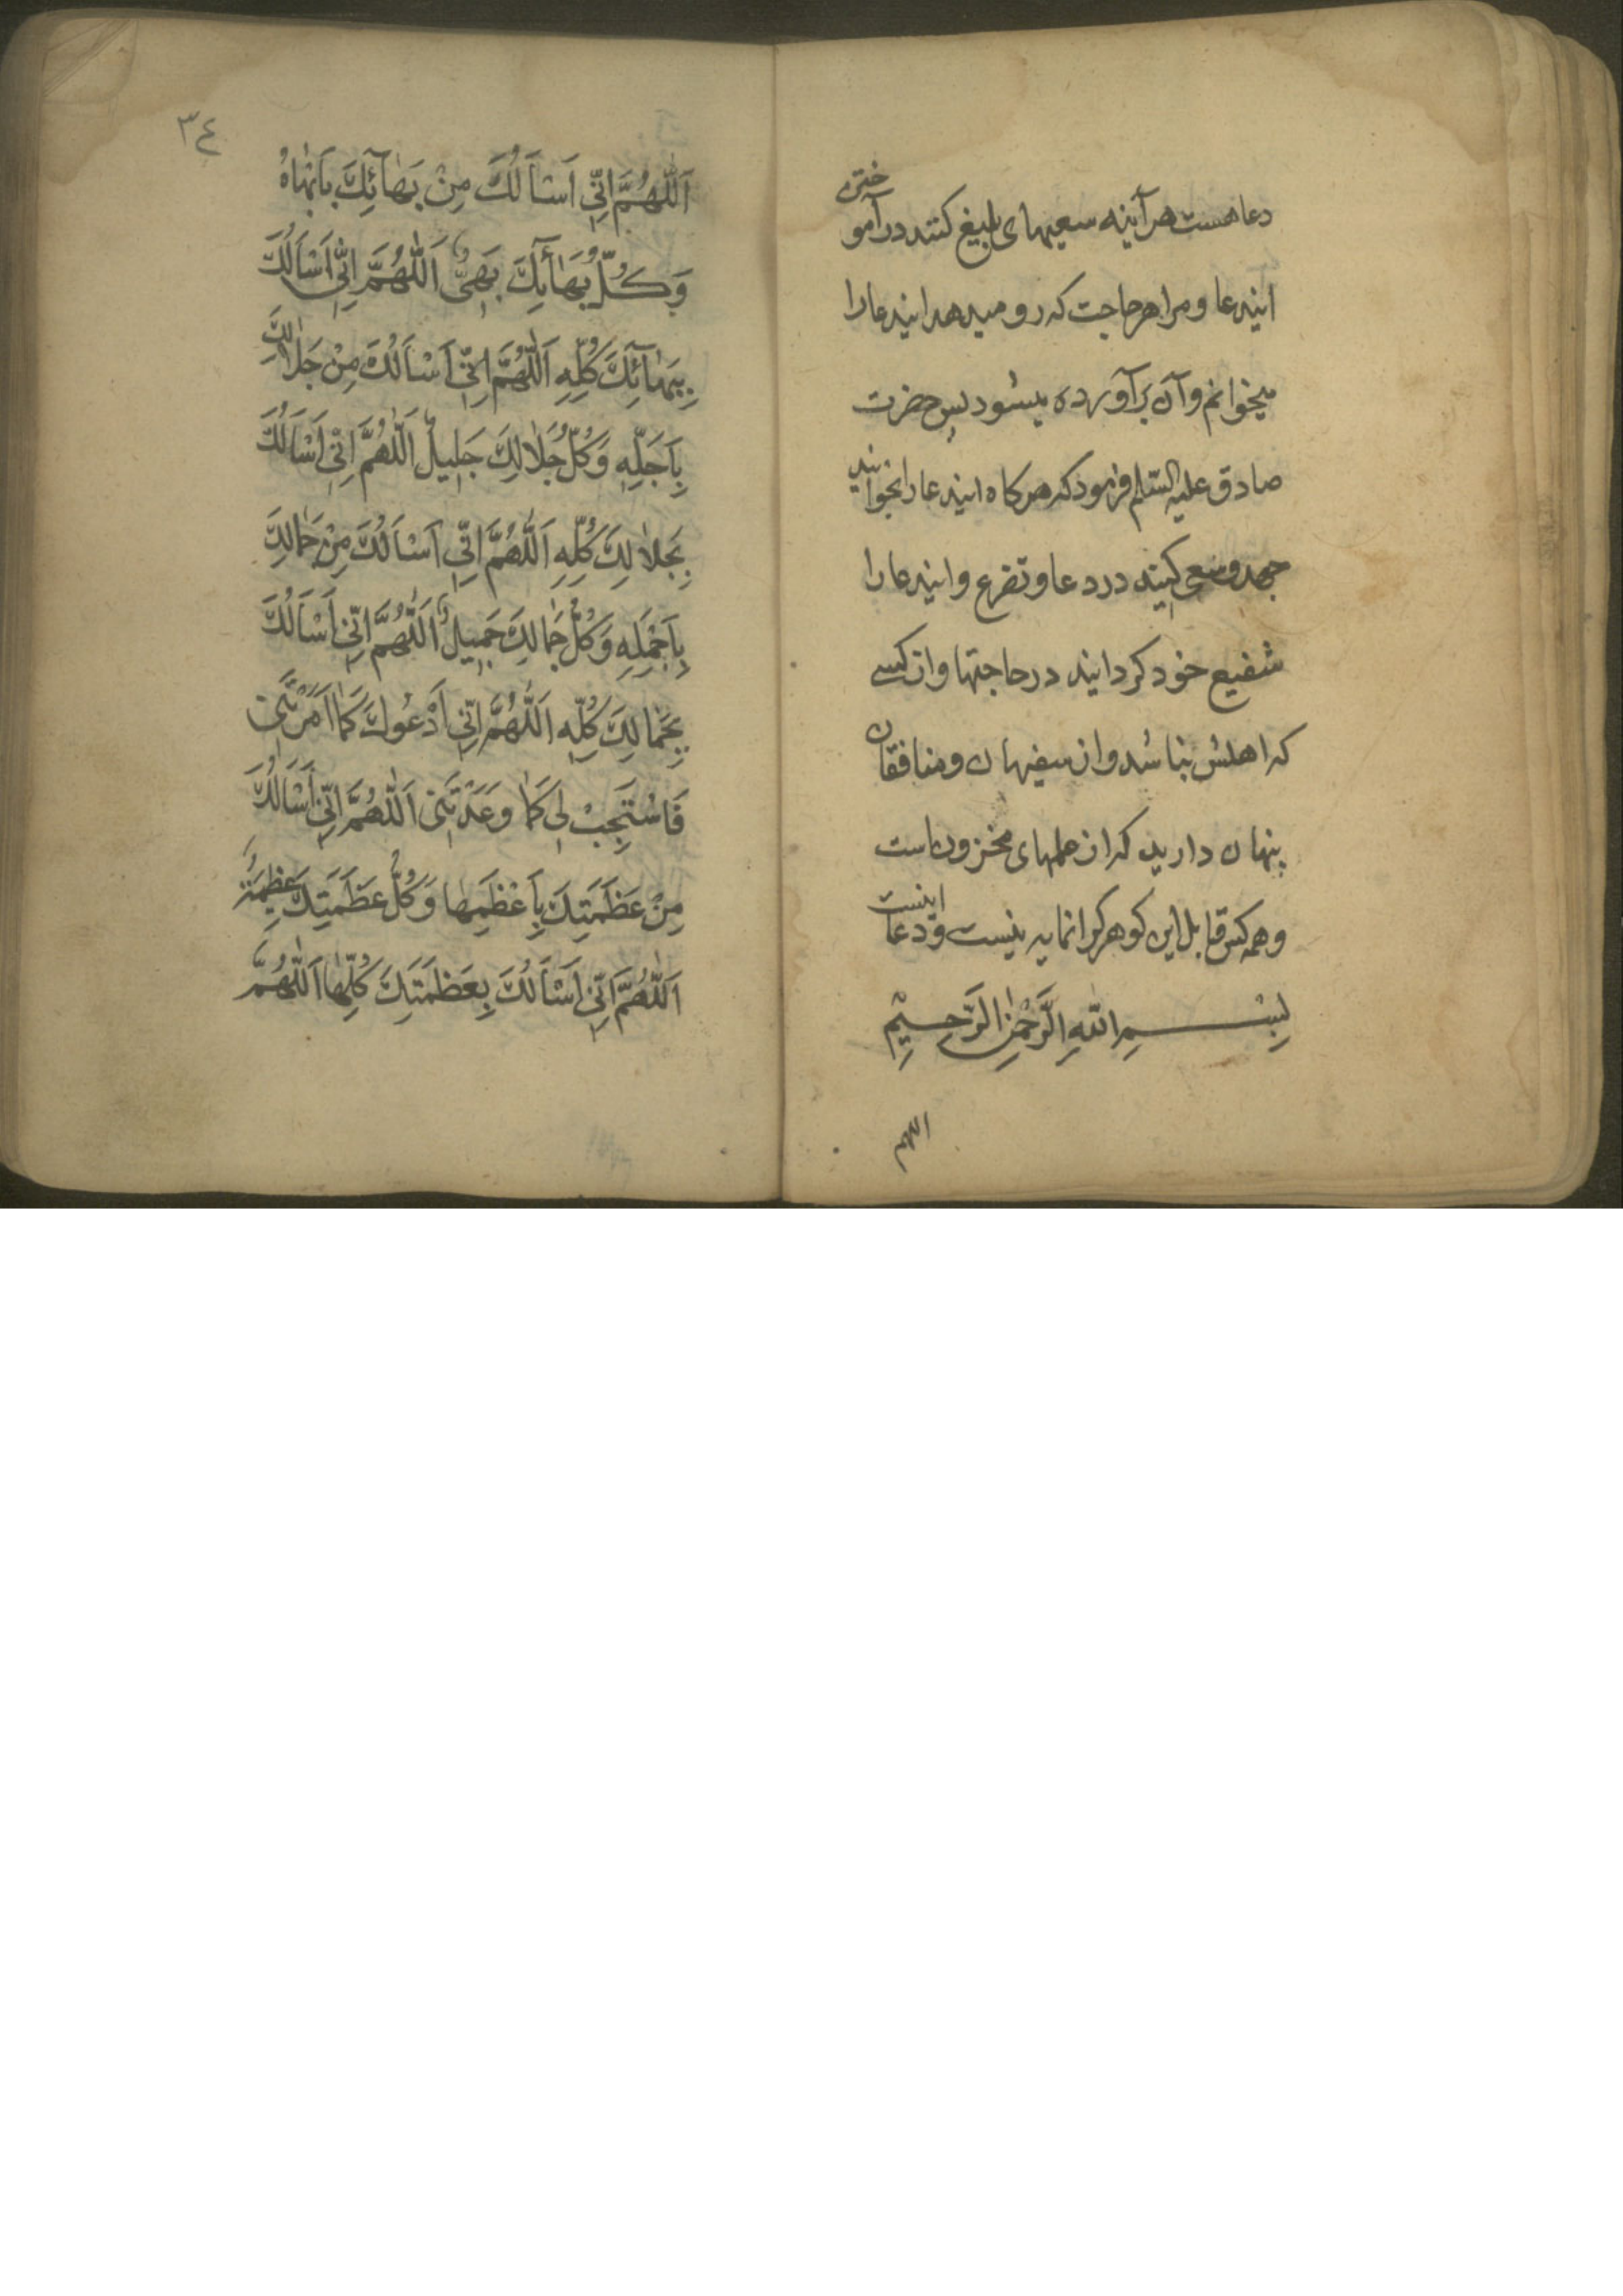 دعا هست هرآینه سعیهای بلیغ کنند در آموختن
ایندعا و مرا هر حاجت که رو میدهد ایندعا را
میخوانم و آن برآورده میشود پس حضرت
صادق علیه السّلم فرمود که هرکاه اینדعا را بخوانید
جهد و سعی کنید در دعا و تضرع و ایندعا را
شفیع خود کردانید در حاجتها و از کسے
که اهلش نباشد و از سفیهان و منافقان
پنهان دارید که از علمهای مخزون است
و همه کس قابل این کوهر کرانمایه نیست و دعا اینست
بِسْمِ اللّهِ الرَّحْمٰنِ الرَّحِیْمِ
اللهم
٣٤
اَللّٰهُمَّ اِنّٖی اَسْاَلُكَ مِنْ بَهٰآئِكَ بِاَبْهٰاهُ
وَکُلُّ بَهٰآئِكَ بَهِیٌّ اَللّٰهُمَّ اِنّٖی اَسْاَلُكَ
بِبَهٰآئِكَ کُلِّهٖ اَللّٰهُمَّ اِنّٖی اَسْاَلُكَ مِنْ جَلٰالِكَ
بِاَجَلِّهٖ وَکُلُّ جَلٰالِكَ جَلٖیلٌ اَللّٰهُمَّ اِنّٖی اَسْاَلُكَ
بِجَلٰالِكَ کُلِّهٖ اَللّٰهُمَّ اِنّٖی اَسْاَلُكَ مِنْ جَمٰالِكَ
بِاَجْمَلِهٖ وَکُلُّ جَمٰالِكَ جَمٖیلٌ اَللّٰهُمَّ اِنّٖی اَسْاَلُكَ
بِجَمٰالِكَ کُلِّهٖ اَللّٰهُمَّ اِنّٖی اَدْعُوكَ کَمٰا اَمَرْتَنٖی
فَاسْتَجِبْ لٖی کَمٰا وَعَدْتَنٖی اَللّٰهُمَّ اِنّٖی اَسْاَلُكَ
مِنْ عَظَمَتِكَ بِاَعْظَمِهٰا وَکُلُّ عَظَمَتِكَ عَظٖیمَةٌ
اَللّٰهُمَّ اِنّٖی اَسْاَلُكَ بِعَظَمَتِكَ کُلِّهٰا اَللّٰهُمَّ